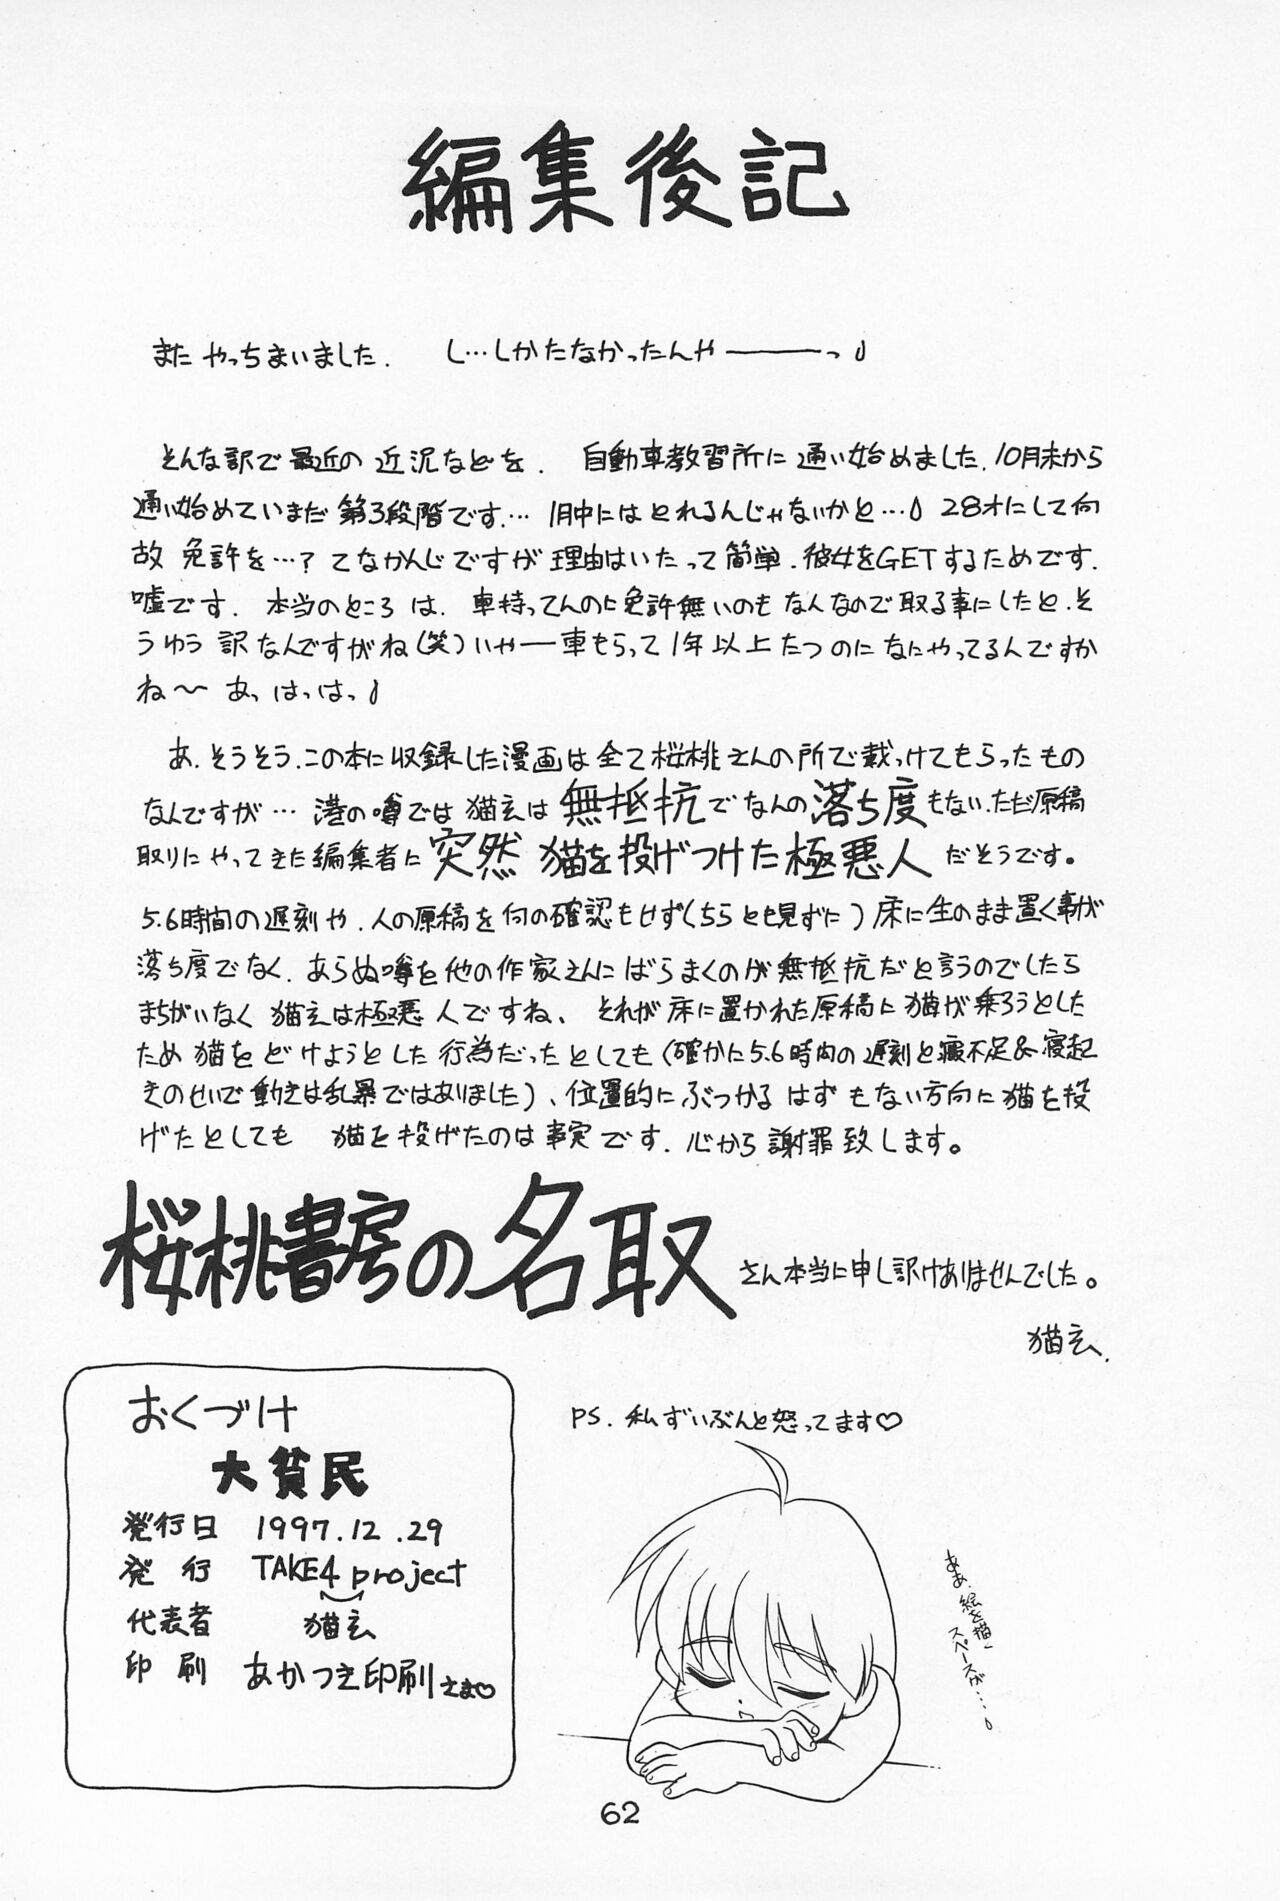 編集後記
またやっちまいました. し…しかたなかったんやーーーっ
そんな訳で最近の近況などを. 自動車教習所に通い始めました.10月末から
通い始めていまだ第3段階です.… 1月中にはとれるんじゃないかと… 28才にして何
故免許を…？てなかんじですが理由はいたって簡単.彼女をGETするためです.
嘘です. 本当のところは. 車持ってんのに免許無いのもなんなので取る事にしたと.そ
うゆう訳なんですがね(笑)いやー車もらって1年以上たつのになにやってるんですか
ね〜 あっはっはっ
あ.そうそう.この本に収録した漫画は全て桜桃さんの所で載っけてもらったもの
なんですが… 港の噂では猫玄は無抵抗でなんの落ち度もない.ただ原稿
取りにやってきた編集者に突然猫を投げつけた極悪人だそうです。
5.6時間の遅刻や.人の原稿を何の確認もせず(ちらとも見ずに)床に生のまま置く事が
落ち度でなく.あらぬ噂を他の作家さんにばらまくのが無抵抗だと言うのでしたら
まちがいなく猫玄は極悪人ですね、それが床に置かれた原稿に猫が乗ろうとした
ため猫をどけようとした行為だったとしても(確かに5.6時間の遅刻と寝不足&寝起
きのせいで動きは乱暴ではありました)、位置的にぶつかるはずもない方向に猫を投
げたとしても 猫を投げたのは事実です.心から謝罪致します。
桜桃書房の名取さん本当に申し訳けありませんでした。
猫玄.
PS. 私ずいぶんと怒ってます♡
おくづけ
大貧民
発行日 1997.12.29
発行 TAKE4project
代表者 猫玄
印刷 あかつき印刷さま♡
ああ.絵を描く
スペースが…
62